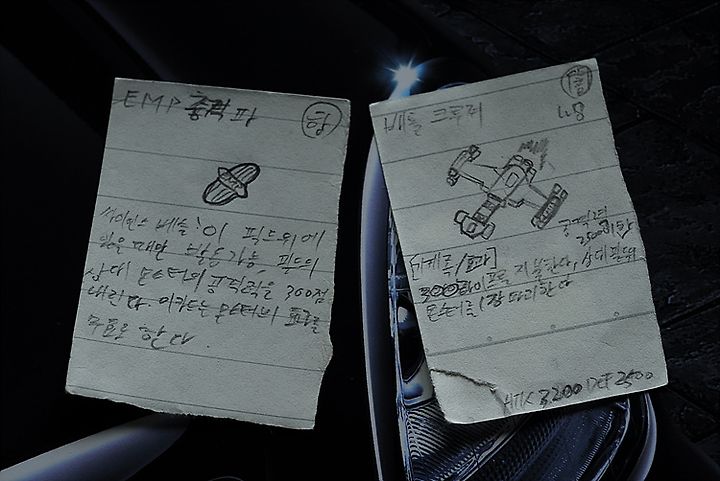 EMP 충격파
함
싸이언스 베슬이 필드위에
있을 때만 발동가능, 필드의
상대 몬스터의 공격력을 300점
내린다. 이카드는 몬스터의 효과를
무효로 한다.
배틀 크루저
L.8
공격력
2500이하
[기계족/효과]
라이프를 지불한다, 상대필드위
몬스터를 1장 파괴한다
ATK 3200 DEF 2500